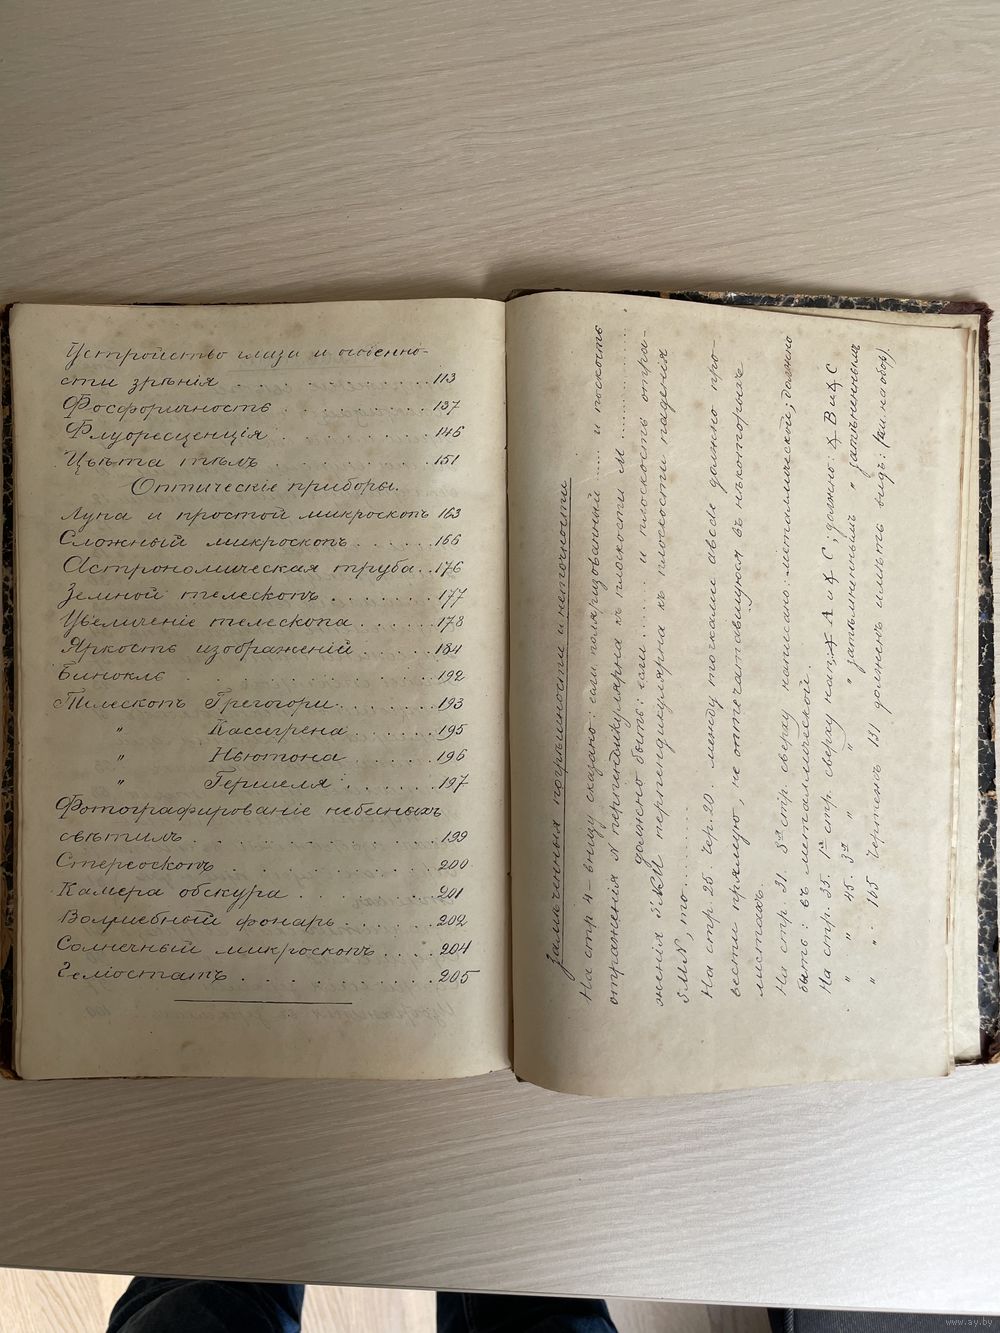 Устройство глаза и особенно-
сти зрѣнія 113
Фосфоричность . . . . . . . 137
Флуоресценція . . . . . . . 146
Цвѣта тѣлъ . . . . . . . 151
Оптическіе приборы.
Лупа и простой микроскопъ 163
Сложный микроскопъ . . . . . . 166
Астрономическая труба . . 176
Земной телескопъ . . . . . . . 177
Увеличеніе телескопа . . . . . . 178
Яркость изображеній . . . . . 184
Бинокль . . . . . . . . . . 192
Телескопъ Грегори . . . . . . 193
" Кассгрена . . . . 195
" Ньютона . . . . 196
" Гершеля . . . . . 197
Фотографированіе небесныхъ
свѣтилъ . . . . . . . . . . 199
Стереоскопъ . . . . . . . . . 200
Камера обскура . . . . . . . 201
Волшебный фонарь . . . . . 202
Солнечный микроскопъ . . . . 204
Геліостатъ . . . . . . . . . 205
Замѣченныя погрѣшности и неточности.
На стр 4 – внизу сказано: если поляризованный ..... и плоскость
отраженія N перпендикулярна къ плоскости M ............
должно быть: если ........ и плоскость отра-
женія SMN перпендикулярна къ плоскости паденія
SMN, то ............
На стр. 25 Чер. 20. между точками abcde должно про-
вести прямую, не отпечатавшуюся въ нѣкоторыхъ
мѣстахъ.
На стр. 31. 3я стр. сверху написано: металлической; должно
быть: въ металлической.
На стр. 35. 1я стр. сверху нап. ∡ A и ∡ C; должно: ∡ B и ∡ C
" " 45. 3я " " " затѣмненнымъ " затѣненнымъ
" " 165 Чертежъ 131 долженъ имѣть видъ: (см. на обор).
www.ay.by